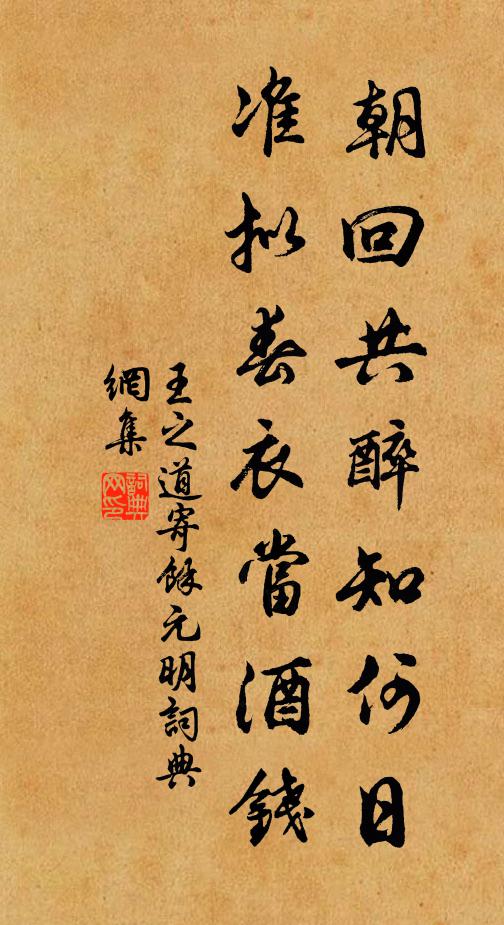 朝回共醉知何日
准拟春衣當酒錢
王之道寄餘元明詞典
網集
詞典網印